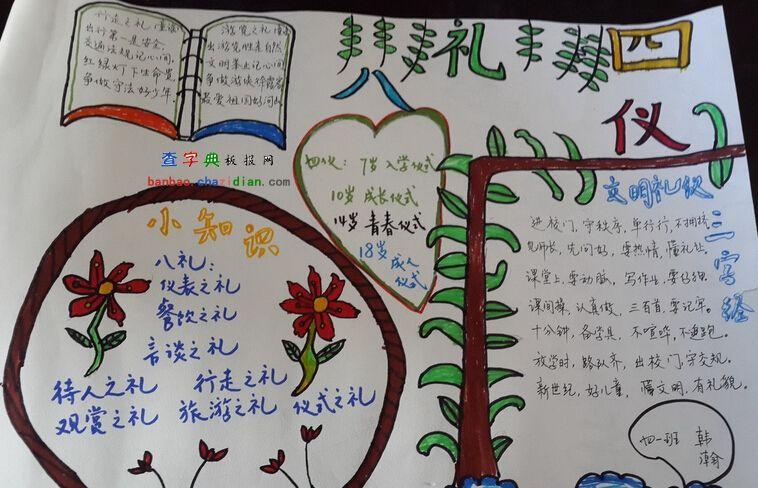 八礼四仪
行走之礼
出行第一是安全,
交通法规记心间,
红绿灯下生命贵
争做守法好少年.
游览之礼
出游览胜走自然
文明举止记心间
争做游侠徐霞客
最爱祖国好河山
查字典板报网
banbao.chazidian.com
四仪: 7岁 入学仪式
10岁 成长仪式
14岁 青春仪式
18岁 成人
仪式
小知识
八礼:
仪表之礼
餐饮之礼
言谈之礼
待人之礼 行走之礼
观赏之礼 旅游之礼 仪式之礼
文明礼仪
三字经
进校门,守秩序,单行行,不拥挤
见师长,先问好,要热情,懂礼貌.
课堂上,要动脑,写作业,要仔细
课间操,认真做,三百首,要记牢。
十分钟,备学具,不喧哗,不追跑。
放学时,路队齐,出校门,守交规。
新世纪,好儿童,懂文明,有礼貌。
四一班 韩